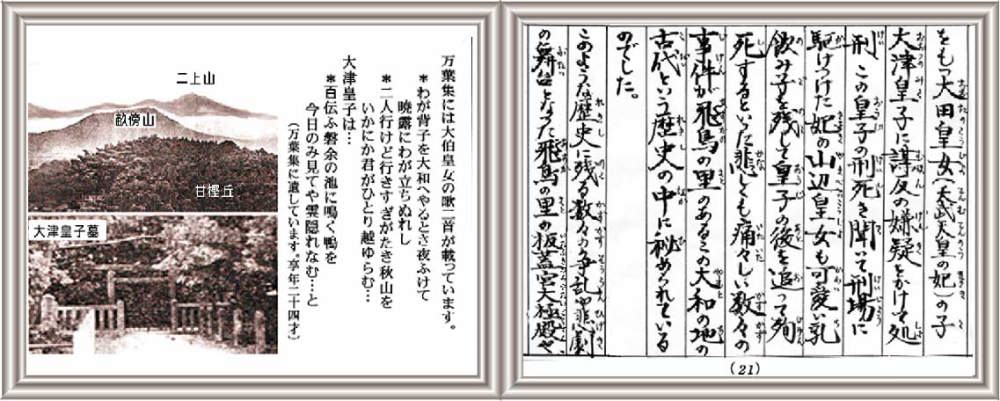 をもつ大田皇女(天武天皇の妃)の子
大津皇子に謀反の嫌疑をかけて処
刑 この皇子の刑死を聞いて刑場に
駆けつけた妃の山辺皇女も可愛い乳
飲み子を残して皇子の後を追って殉
死するといった悲しくも痛々しい数々の
事件が飛鳥の里のあるこの大和の地の
古代という歴史の中に秘められている
のでした。
このような歴史に残る数々の争乱や悲劇
の舞台となった飛鳥の里の板蓋宮大極殿や、
(21)
万葉集には大伯皇女の歌二首が載っています。
*わが背子を大和へやるとさ夜ふけて
暁露にわが立ちぬれし
*二人行けど行きすぎがたき秋山を
いかにか君がひとり越ゆらむ…
大津皇子は…
*百伝ふ磐余の池に鳴く鴨を
今日のみ見てや雲隠れなむ…と
(万葉集に遺しています。享年二十四才)
二上山
畝傍山
甘樫丘
大津皇子墓